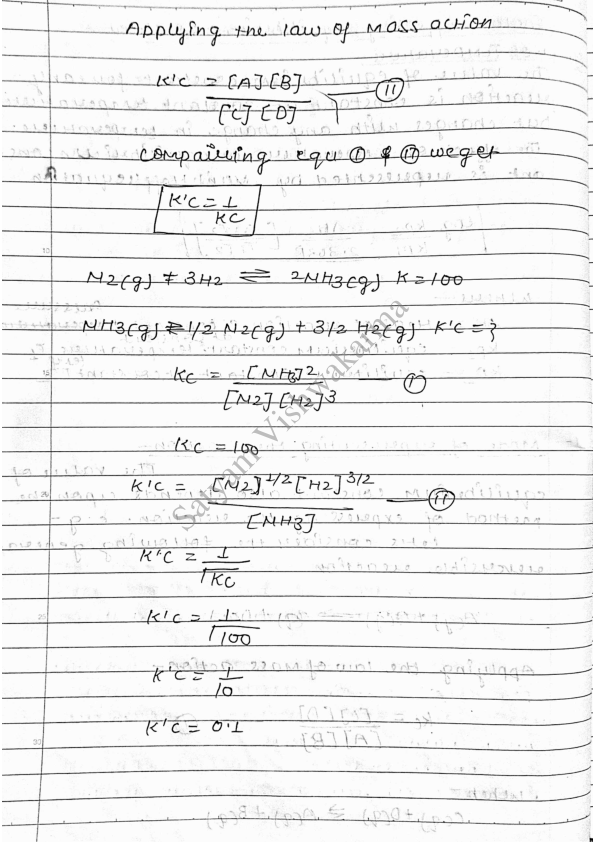 Applying the law of mass action
K'C = [A][B] / [C][D] —— (II)
compairing equ (I) & (II) we get
K'C = 1 / KC
N2(g) + 3H2 ⇌ 2NH3(g) K = 100
NH3(g) ⇌ 1/2 N2(g) + 3/2 H2(g) K'C = ?
KC = [NH3]2 / [N2][H2]3 —— (I)
KC = 100
K'C = [N2]1/2 [H2]3/2 / [NH3] —— (II)
K'C = 1 / √KC
K'C = 1 / √100
K'C = 1 / 10
K'C = 0.1
Satyam Vishwakarma